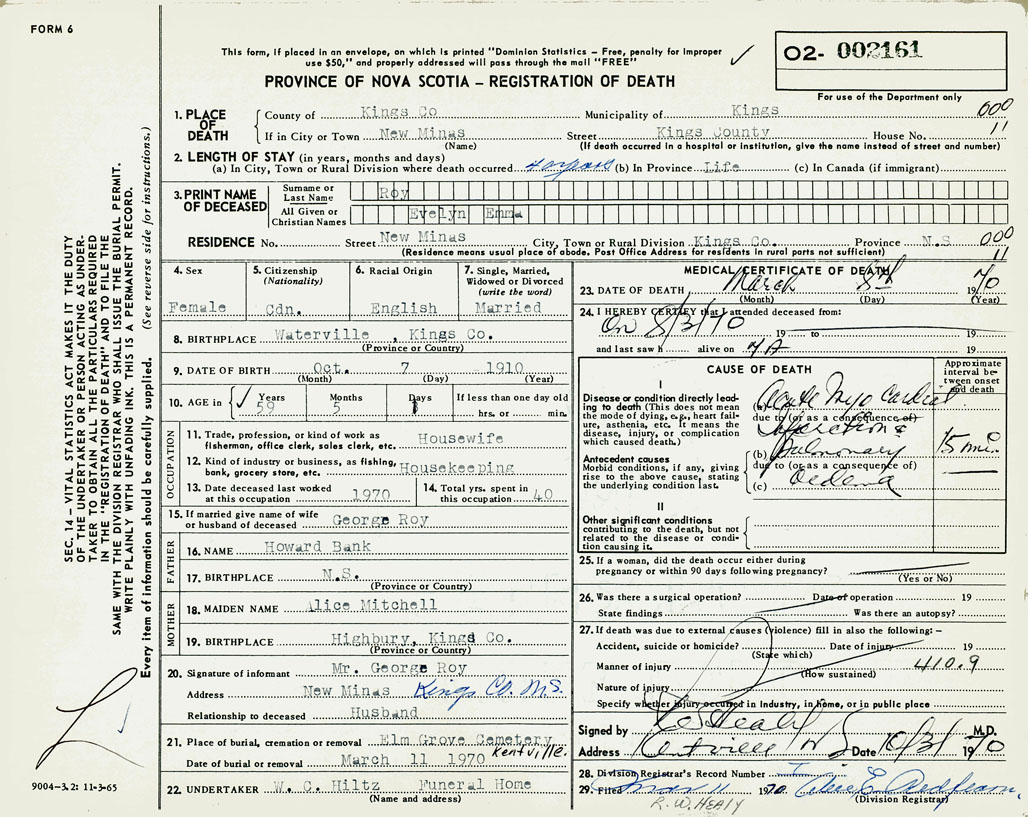 FORM 6
This form, if placed in an envelope, on which is printed "Dominion Statistics – Free, penalty for improper
use $50," and properly addressed will pass through the mail "FREE"
✓
O2- 002161
For use of the Department only
PROVINCE OF NOVA SCOTIA – REGISTRATION OF DEATH
SEC. 14 – VITAL STATISTICS ACT MAKES IT THE DUTY
OF THE UNDERTAKER OR PERSON ACTING AS UNDER-
TAKER TO OBTAIN ALL THE PARTICULARS REQUIRED
IN THE "REGISTRATION OF DEATH" AND TO FILE THE
SAME WITH THE DIVISION REGISTRAR WHO SHALL ISSUE THE BURIAL PERMIT.
WRITE PLAINLY WITH UNFADING INK. THIS IS A PERMANENT RECORD.
Every item of information should be carefully supplied. (See reverse side for instructions.)
1. PLACE OF DEATH
County of Kings Co Municipality of Kings 000
If in City or Town New Minas Street Kings County House No. 11
(Name) (If death occurred in a hospital or institution, give the name instead of street and number)
2. LENGTH OF STAY (in years, months and days)
(a) In City, Town or Rural Division where death occurred 40 years (b) In Province Life (c) In Canada (if immigrant)
3. PRINT NAME OF DECEASED
Surname or Last Name Roy
All Given or Christian Names Evelyn Emma
RESIDENCE No. Street New Minas City, Town or Rural Division Kings Co. Province N.S 000
(Residence means usual place of abode. Post Office Address for residents in rural parts not sufficient) 11
4. Sex
Female
5. Citizenship
(Nationality)
Cdn.
6. Racial Origin
English
7. Single, Married,
Widowed or Divorced
(write the word)
Married
8. BIRTHPLACE Waterville , Kings Co.
(Province or Country)
9. DATE OF BIRTH Oct. 7 1910
(Month) (Day) (Year)
10. AGE in ✓ Years 59 Months 5 Days 1 If less than one day old
hrs. or min.
OCCUPATION
11. Trade, profession or kind of work as
fisherman, office clerk, sales clerk, etc. Housewife
12. Kind of industry or business, as fishing,
bank, grocery store, etc. Housekeeping
13. Date deceased last worked
at this occupation 1970
14. Total yrs. spent in
this occupation 40
15. If married give name of wife
or husband of deceased George Roy
FATHER
16. NAME Howard Bank
17. BIRTHPLACE N.S.
(Province or Country)
MOTHER
18. MAIDEN NAME Alice Mitchell
19. BIRTHPLACE Highbury, Kings Co.
(Province or Country)
20. Signature of informant Mr. George Roy
Address New Minas Kings Co. N.S.
Relationship to deceased Husband
21. Place of burial, cremation or removal Elm Grove Cemetery
Kentville.
Date of burial or removal March 11 1970
22. UNDERTAKER W. C. Hiltz Funeral Home
(Name and address)
9004-3.2: 11-3-65
MEDICAL CERTIFICATE OF DEATH
23. DATE OF DEATH March 8th 1970
(Month) (Day) (Year)
24. I HEREBY CERTIFY that I attended deceased from:
On 8/3/70 19 to 19
and last saw h alive on 19
CAUSE OF DEATH
Approximate
interval be-
tween onset
and death
I
Disease or condition directly lead-
ing to death (This does not mean
the mode of dying, e.g., heart fail-
ure, asthenia, etc. It means the
disease, injury, or complication
which caused death.)
(a) Acute Myocardial
due to (or as a consequence of)
Infarction &
Antecedent causes
Morbid conditions, if any, giving
rise to the above cause, stating
the underlying condition last.
(b) Pulmonary 15 min.
due to (or as a consequence of)
(c) Oedema
II
Other significant conditions
contributing to the death, but not
related to the disease or condi-
tion causing it.
25. If a woman, did the death occur either during
pregnancy or within 90 days following pregnancy?
(Yes or No)
26. Was there a surgical operation? Date of operation 19
State findings Was there an autopsy?
27. If death was due to external causes (violence) fill in also the following: –
Accident, suicide or homicide? Date of injury 19
(State which)
Manner of injury 410.9
(How sustained)
Nature of injury
Specify whether injury occurred in industry, in home, or in public place
Signed by Healy M.D.
Address Kentville N S Date 10/3/ 1970
28. Division Registrar's Record Number
29. Filed Mar 11 1970
(Division Registrar)
R.W. HEALY